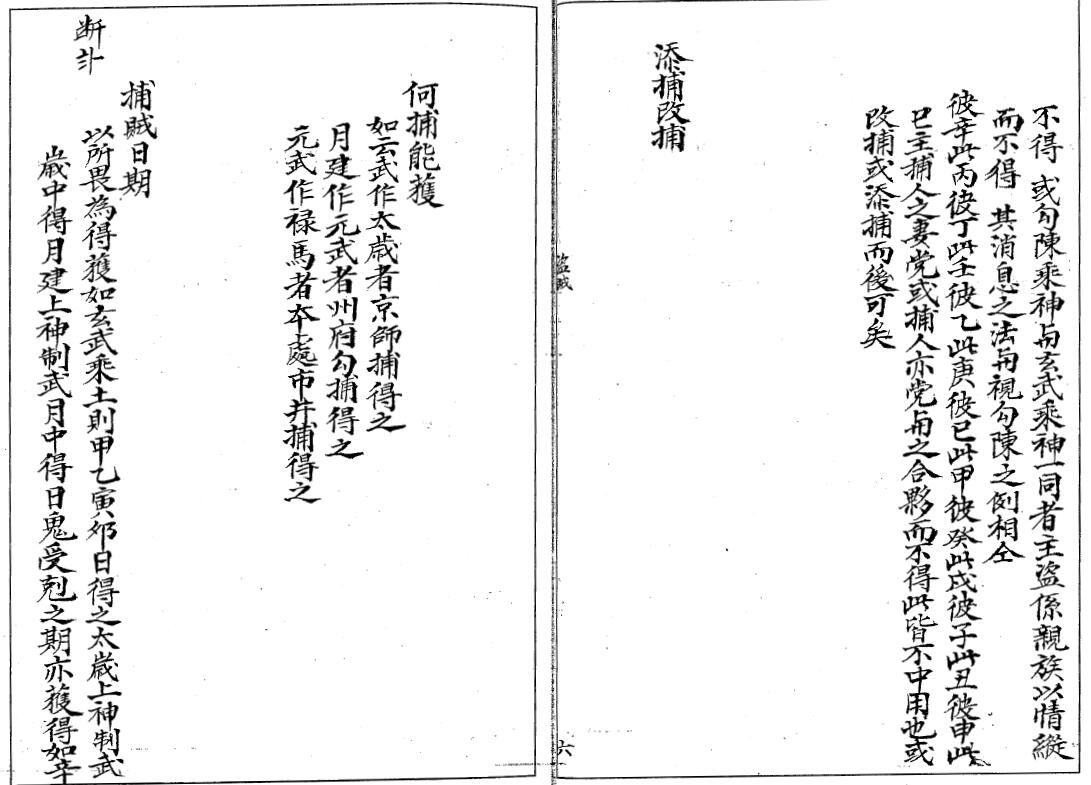 不得 或勾陳乘神與玄武乘神一同者主盜係親族以情縱
而不得 其消息之法與視勾陳之例相仝
彼辛此丙彼丁此壬彼乙此庚彼已此甲彼癸此戊彼子此丑彼申此
巳主捕人之妻党或捕人亦党與之合夥而不得此皆不中用也或
改捕或添捕而後可矣
添捕改捕
盜賊
六
何捕能獲
如云武作太歲者京師捕得之
月建作元武者州府勾捕得之
元武作禄馬者本處市井捕得之
捕賊日期
以所畏為得獲如玄武乘土則甲乙寅夘日得之太歲上神制武
歲中得月建上神制武月中得日鬼受剋之期亦獲得如辛
断卦